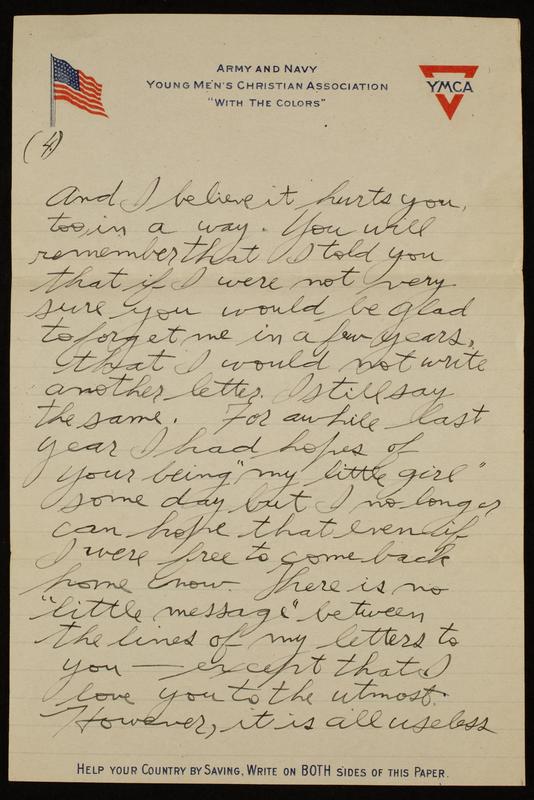 ARMY AND NAVY
YOUNG MEN'S CHRISTIAN ASSOCIATION
"WITH THE COLORS"
YMCA
(4)
And I believe it hurts you,
too, in a way. You will
remember that I told you
that if I were not very
sure you would be glad
to forget me in a few years,
that I would not write
another letter. I still say
the same. For awhile last
year I had hopes of
your being "my little girl"
some day but I no longer
can hope that even if
I were free to come back
home now. There is no
"little message" between
the lines of my letters to
you — except that I
love you to the utmost.
However, it is all useless
HELP YOUR COUNTRY BY SAVING, WRITE ON BOTH SIDES OF THIS PAPER.